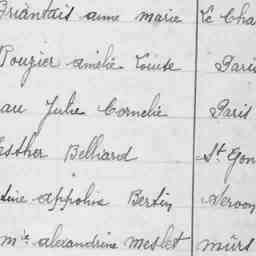 Briantais anne marie Le Cha
Pougier amélie Louise Paris
au Julie Cornelie Paris
Esther Belliard St Gon
tine appoline Bertin
mie alexandrine Meslet murs